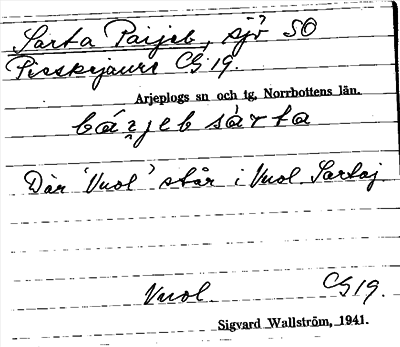 Sarta Paijeb, sjö SO
Pieskejaure CG 19.
Arjeplogs sn och tg, Norrbottens län.
bájjeb sárta
Där 'Vuol' står i Vuol. Sartaj.
Vuol. CG 19.
Sigvard Wallström, 1941.